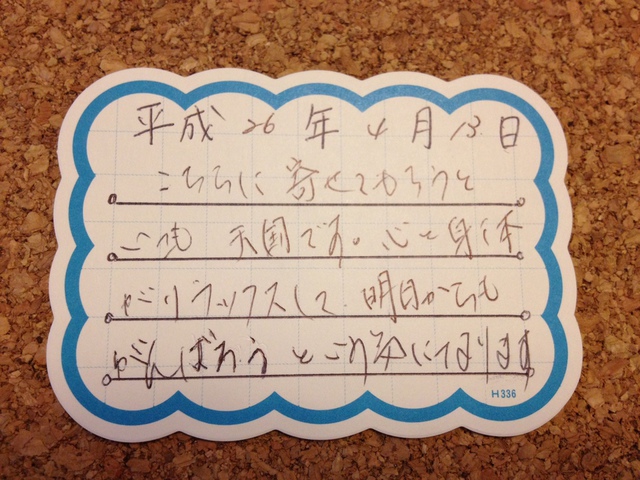 平成26年4月13日
こちらに寄せてもらうと
いつも天国です。心と身体
がリラックスして、明日からも
がんばろうという気分になります
H336